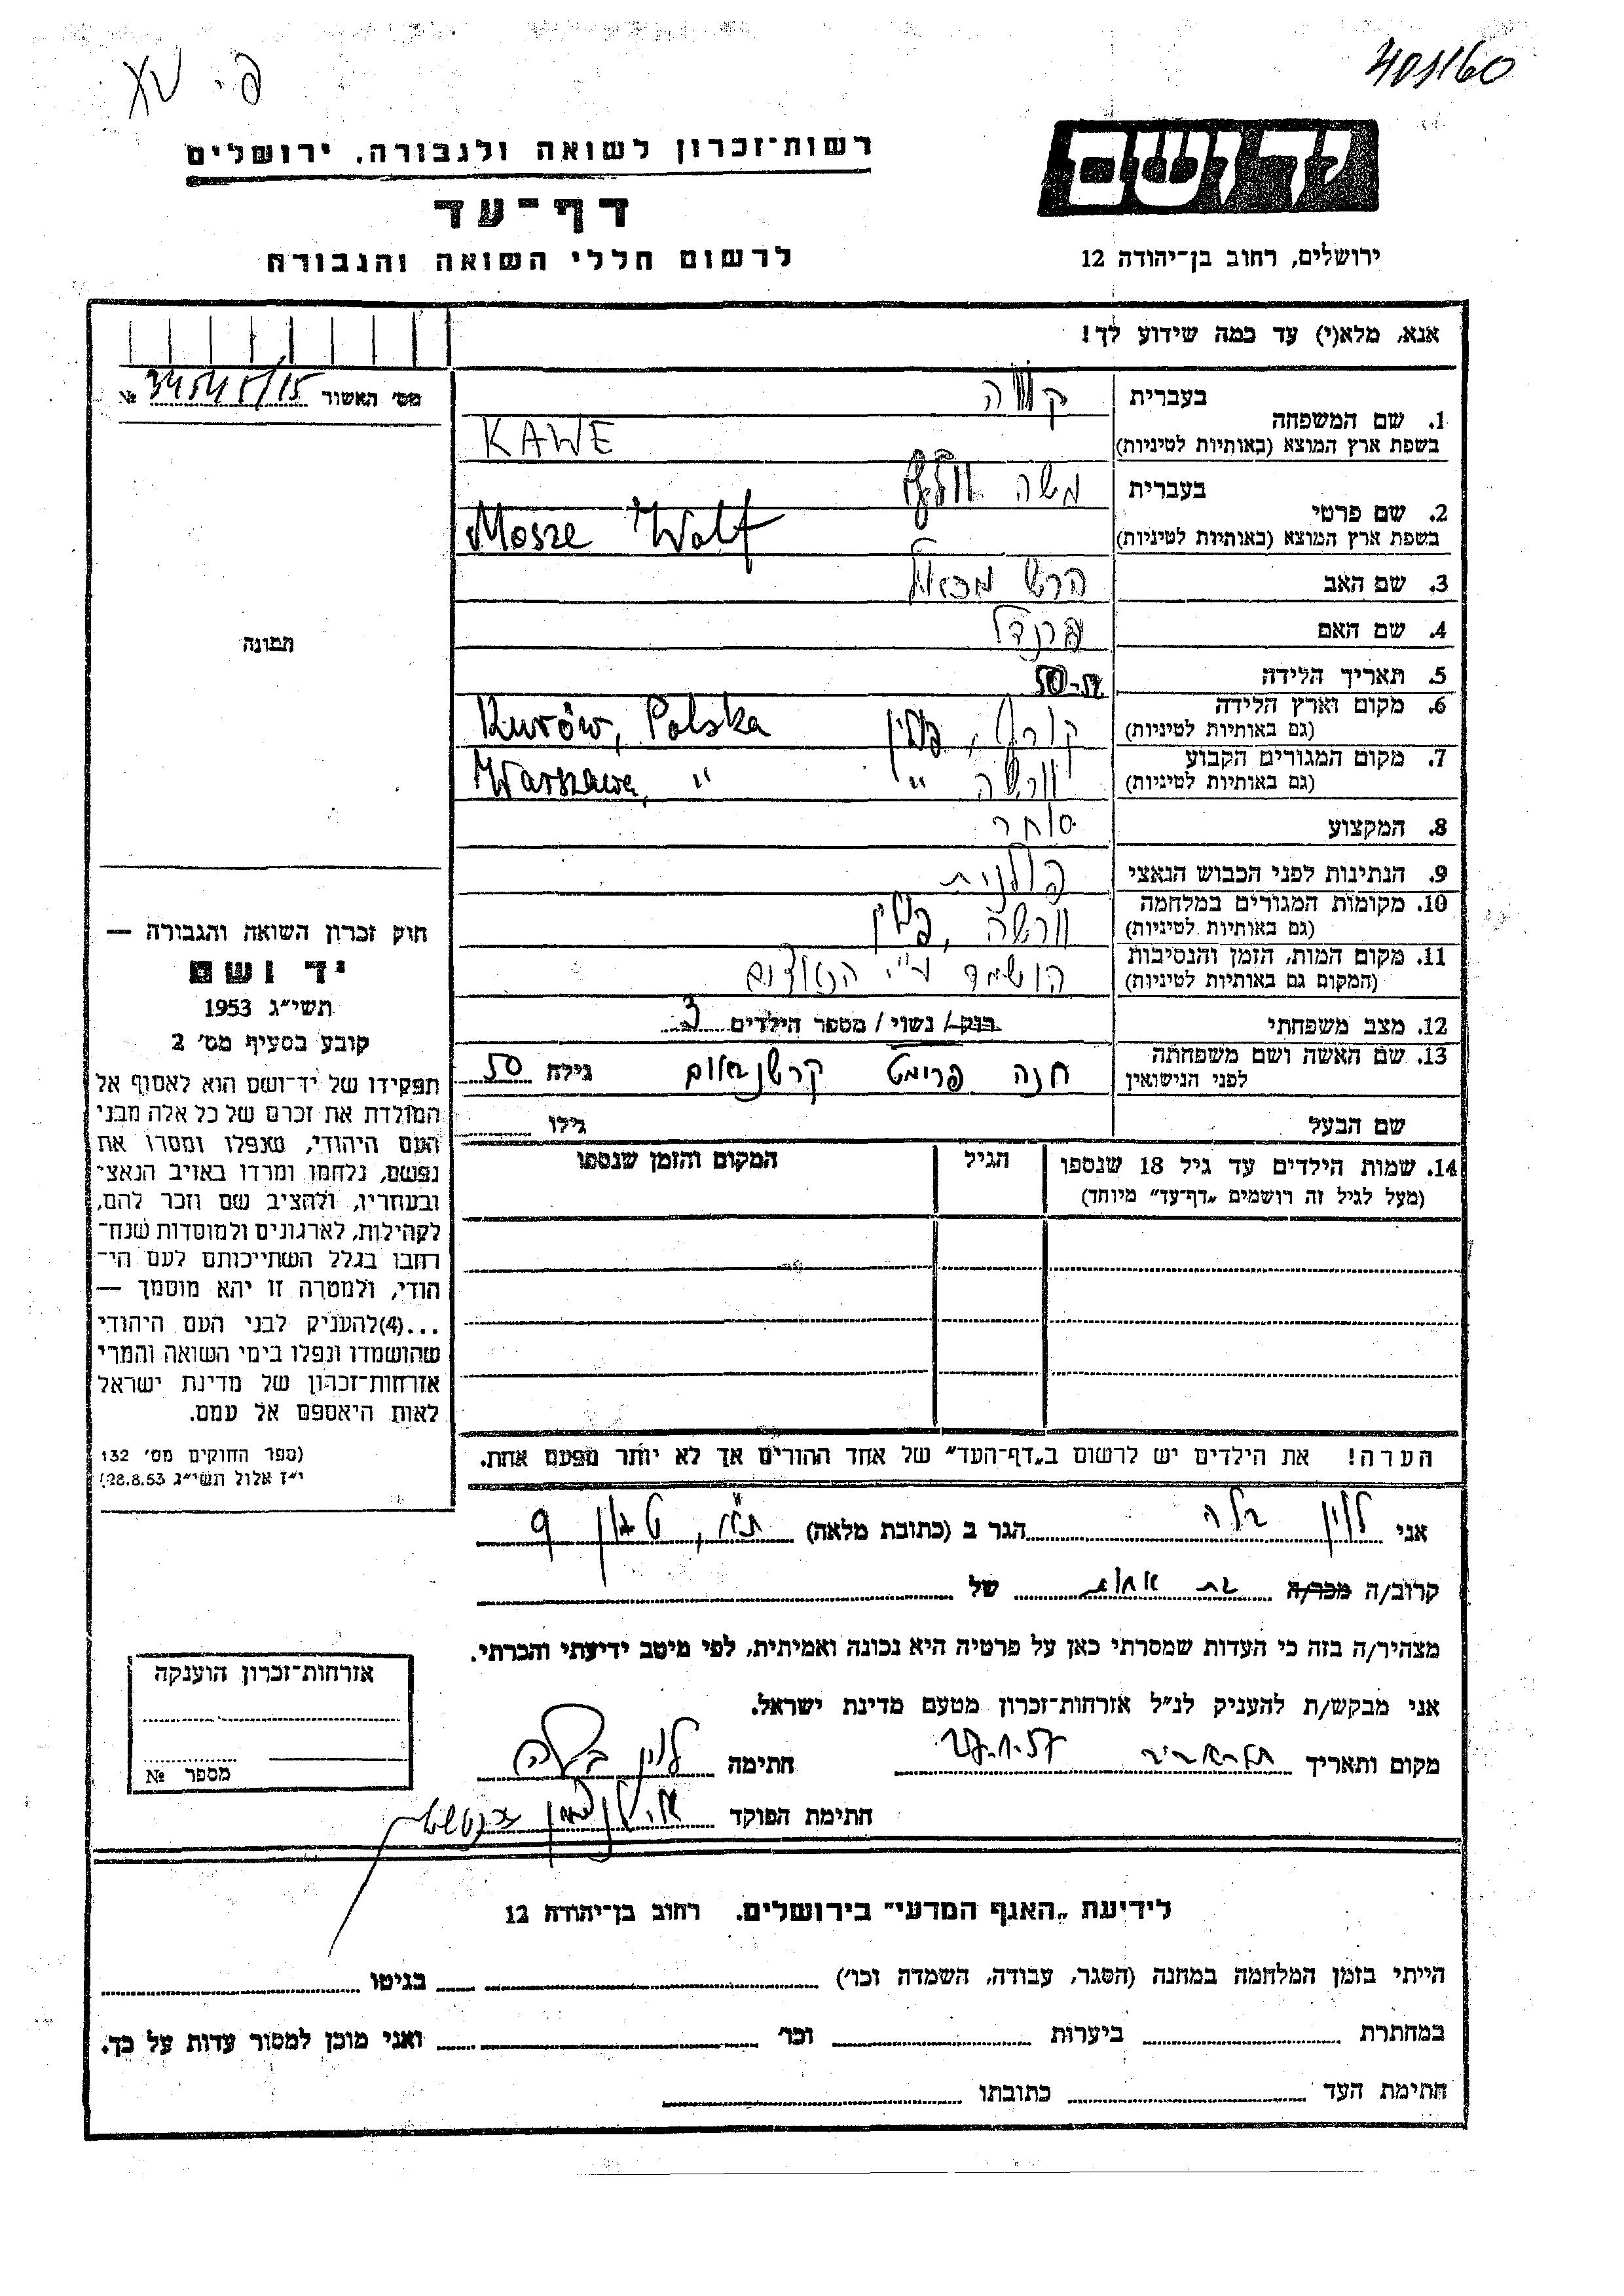 רשות־זכרון לשואה ולגבורה. ירושלים
ידושם
דף־עד
לרשום חללי השואה והגבורה
ירושלים, רחוב בן־יהודה 12
אנא, מלא(י) עד כמה שידוע לך!
מס׳ האשור №
1. שם המשפחה
בעברית
בשפת ארץ המוצא (באותיות לטיניות) KAWE
2. שם פרטי
בעברית משה וולף
בשפת ארץ המוצא (באותיות לטיניות) Mosze Wolf
3. שם האב הרש
4. שם האם
5. תאריך הלידה
6. מקום וארץ הלידה
(גם באותיות לטיניות) קורוב, פולין Kurów, Polska
7. מקום המגורים הקבוע
(גם באותיות לטיניות) וורשה " Warszawa, "
8. המקצוע סוחר
9. הנתינות לפני הכבוש הנאצי פולנית
10. מקומות המגורים במלחמה
(גם באותיות לטיניות) וורשה, פולין
11. מקום המות, הזמן והנסיבות
(המקום גם באותיות לטיניות) הושמד ע"י הנאצים
12. מצב משפחתי רווק / נשוי / מספר הילדים 3
13. שם האשה ושם משפחתה
לפני הנישואין חנה פרומט קרשנבאום גילה 50
שם הבעל גילו
14. שמות הילדים עד גיל 18 שנספו הגיל המקום והזמן שנספו
(מעל לגיל זה רושמים „דף־עד״ מיוחד)
הערה! את הילדים יש לרשום ב„דף־העד״ של אחד ההורים אך לא יותר מפעם אחת.
תמונה
חוק זכרון השואה והגבורה —
יד ושם
תשי״ג 1953
קובע בסעיף מס׳ 2
תפקידו של יד־ושם הוא לאסוף אל
המולדת את זכרם של כל אלה מבני
העם היהודי, שנפלו ומסרו את
נפשם, נלחמו ומרדו באויב הנאצי
ובעוזריו, ולהציב שם וזכר להם,
לקהילות, לארגונים ולמוסדות שנח־
רבו בגלל השתייכותם לעם הי־
הודי, ולמטרה זו יהא מוסמך —
...(4)להעניק לבני העם היהודי
שהושמדו ונפלו בימי השואה והמרי
אזרחות־זכרון של מדינת ישראל
לאות היאספם אל עמם.
(ספר החוקים מס׳ 132
י״ז אלול תשי״ג 28.8.53)
אני לוין בלה הגר ב (כתובת מלאה) ת"א, 9
קרוב/ה מכר/ה בת אחות של
מצהיר/ה בזה כי העדות שמסרתי כאן על פרטיה היא נכונה ואמיתית, לפי מיטב ידיעתי והכרתי.
אני מבקש/ת להעניק לנ״ל אזרחות־זכרון מטעם מדינת ישראל.
מקום ותאריך תל אביב חתימה לוין בלה
חתימת הפוקד
אזרחות־זכרון הוענקה
מספר №
לידיעת „האגף המדעי״ בירושלים. רחוב בן־יהודה 12
הייתי בזמן המלחמה במחנה (הסגר, עבודה, השמדה וכו׳) בגיטו
במחתרת ביערות וכו׳ ואני מוכן למסור עדות על כך.
חתימת העד כתובתו